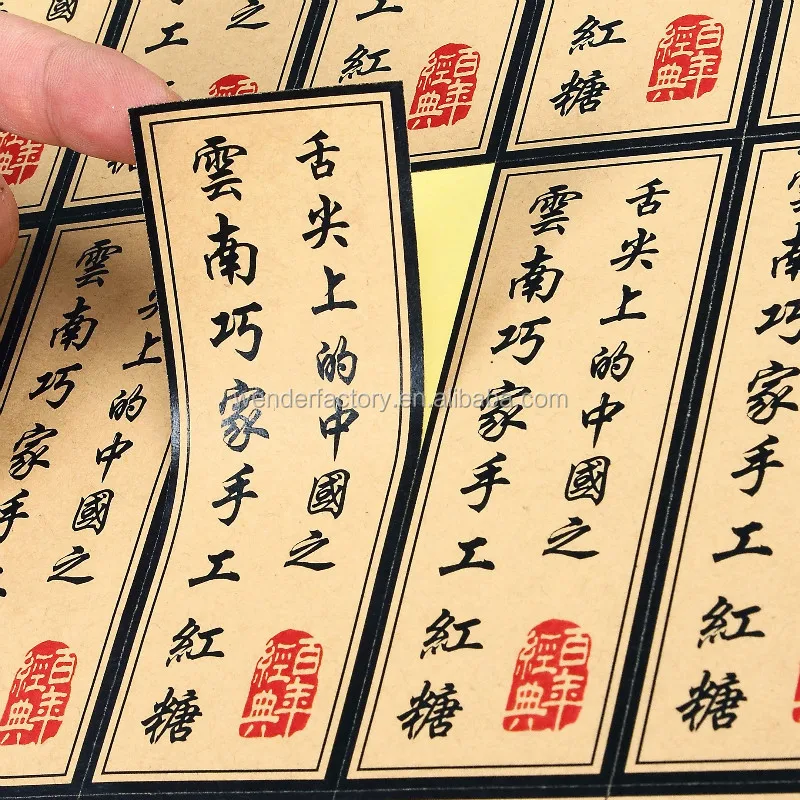 舌尖上的中國之
雲南巧家手工紅糖
百年
經典
舌尖上的中國之
雲南巧家手工紅糖
百年
經典
上的中國之
雲南巧家手
百年
經典
南巧家手工紅糖
紅糖
百年
經典
wenderfactory.en.alibaba.com